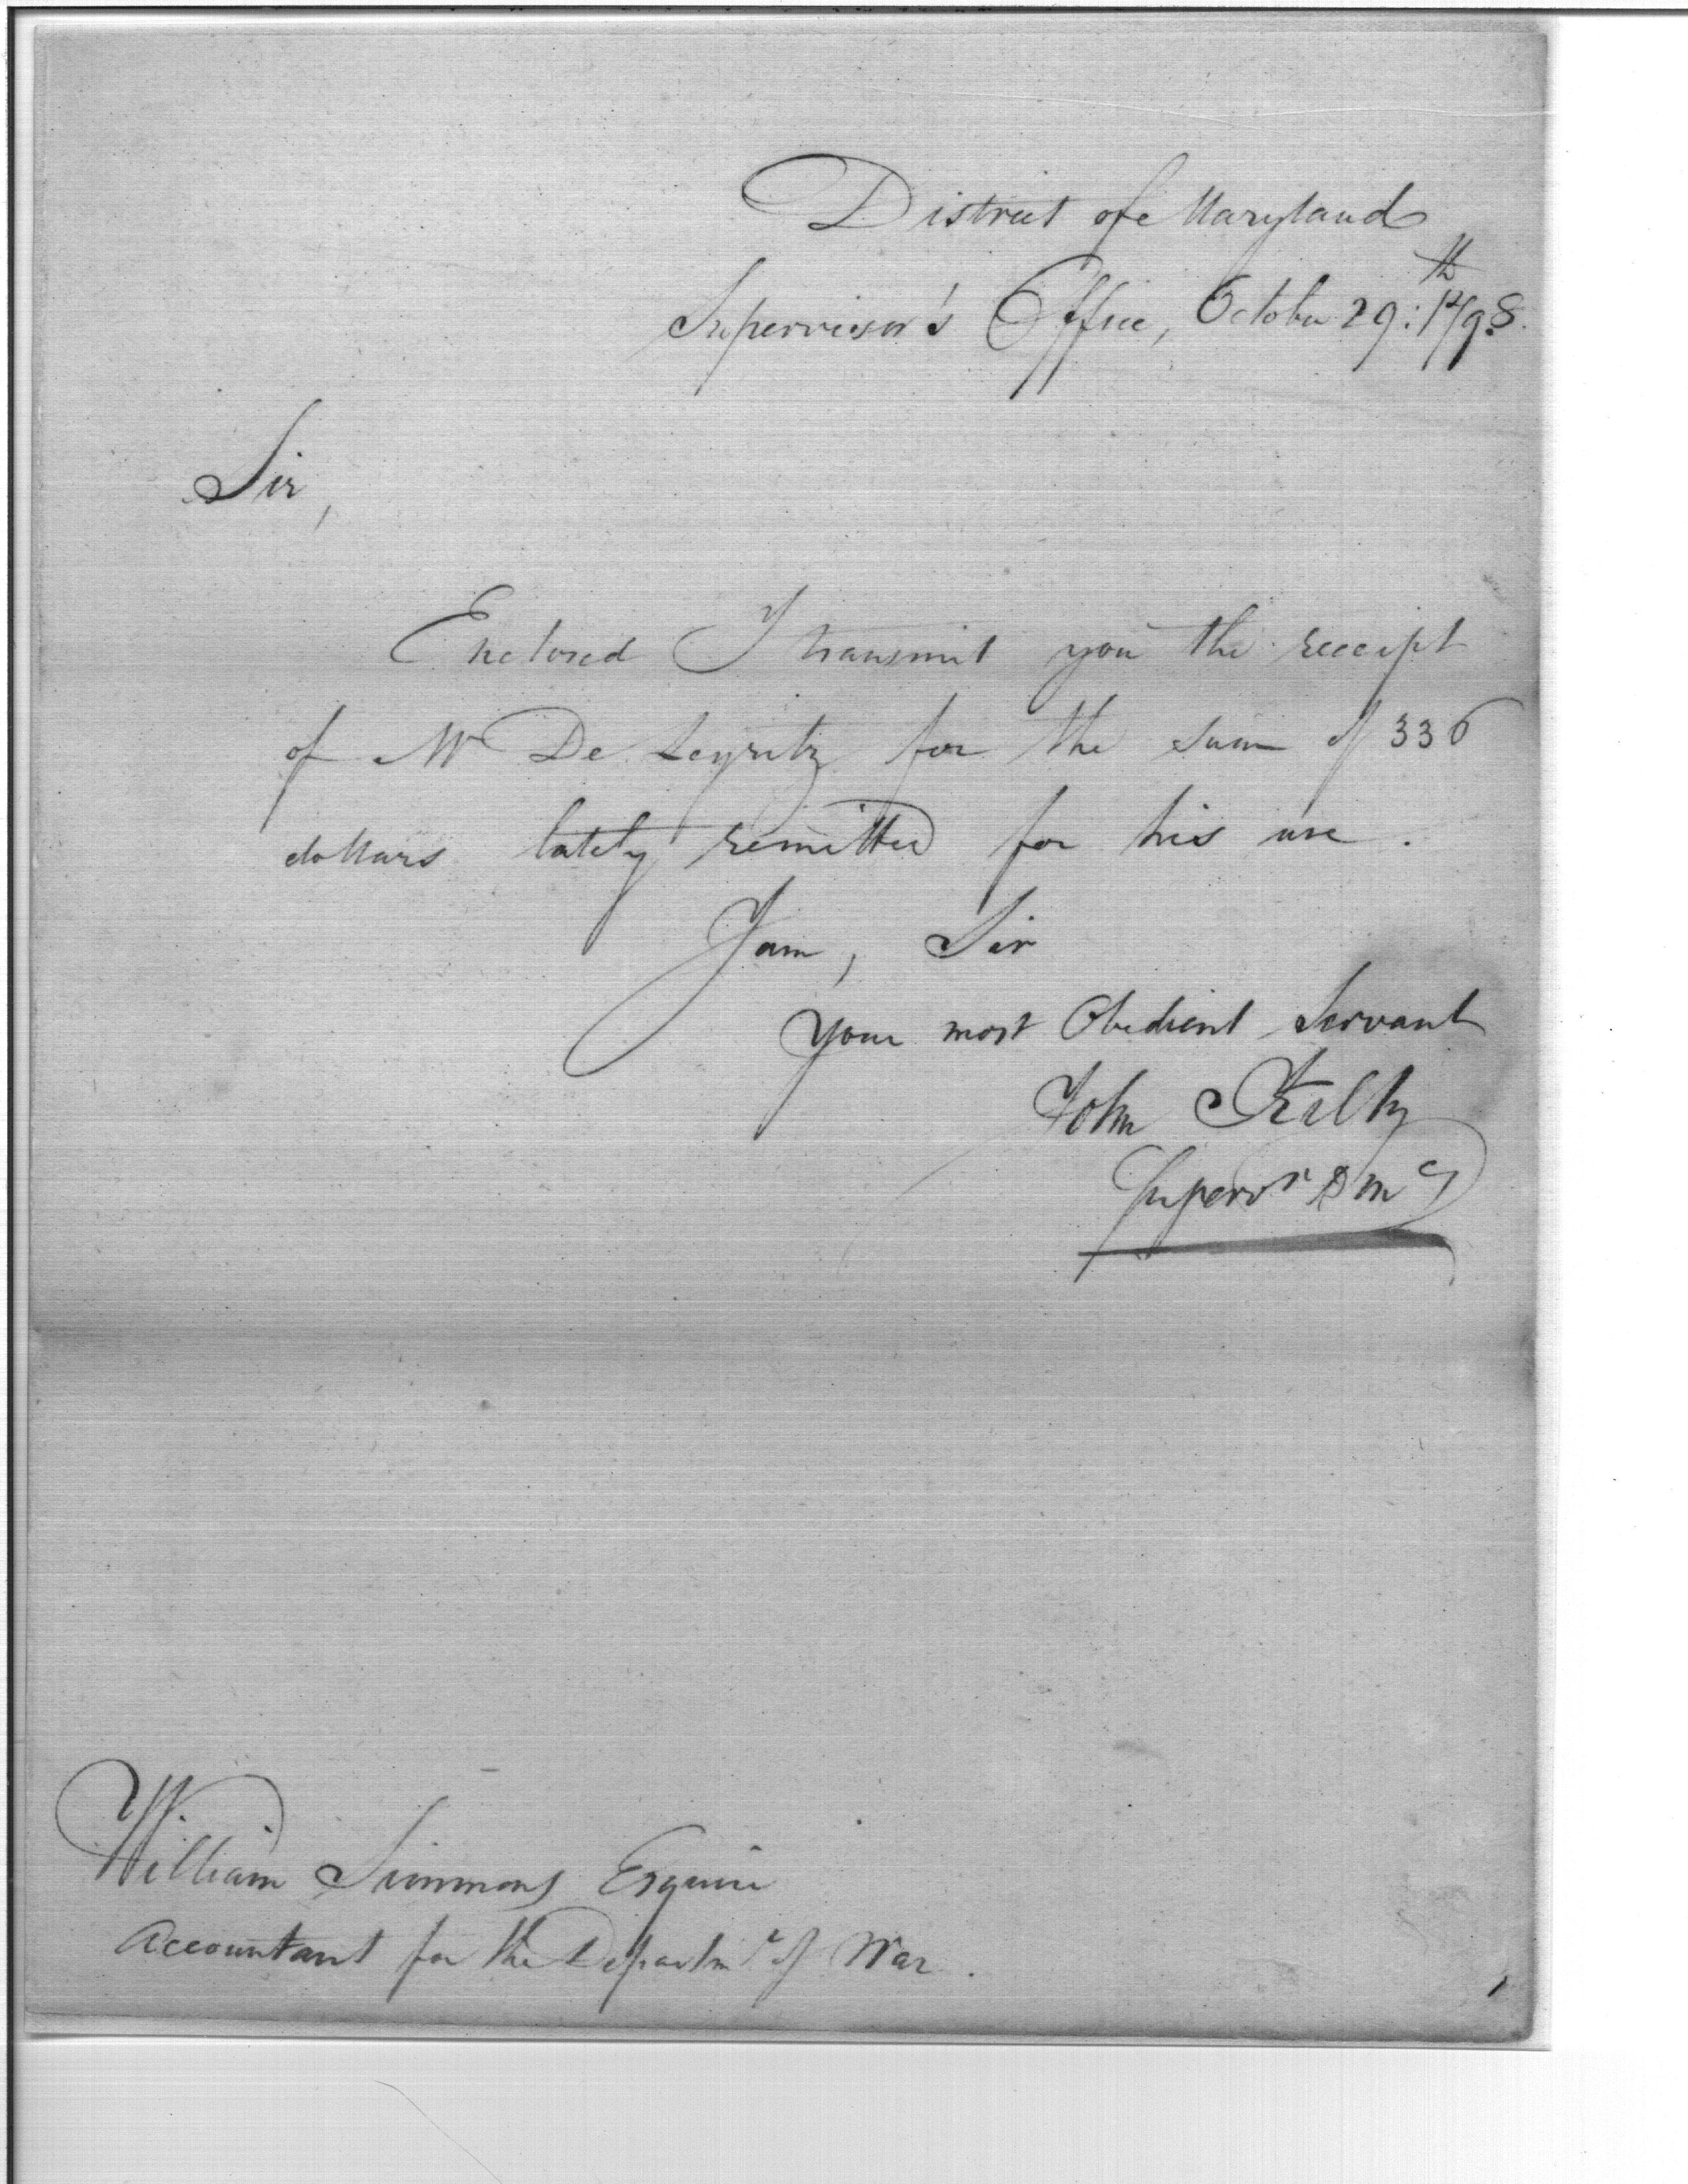 District of Maryland
Supervisor's Office, October 29:th 1798.
Sir,
Enclosed I transmit you the receipt
of Mr De Leyritz for the sum of 336
dollars lately remitted for his use.
I am, Sir
Your most Obedient Servant
John Kilty
Supervr D Md
William Simmons Esquire
Accountant for the Departmt of War.